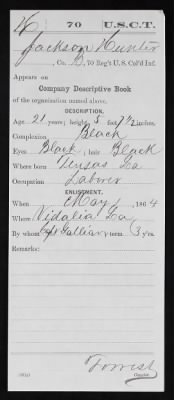 H 70 U.S.C.T.
Jackson Hunter
, Co. B, 70 Reg't U. S. Col'd Inf.
Appears on
Company Descriptive Book
of the organization named above.
DESCRIPTION.
Age 21 years; height 5 feet 7½ inches.
Complexion Black
Eyes Black; hair Black
Where born Tensas La
Occupation Laborer
ENLISTMENT.
When May 1, 1864
Where Vidalia La
By whom Capt Gallian; term 3 y'rs.
Remarks:
Forrest
Copyist.